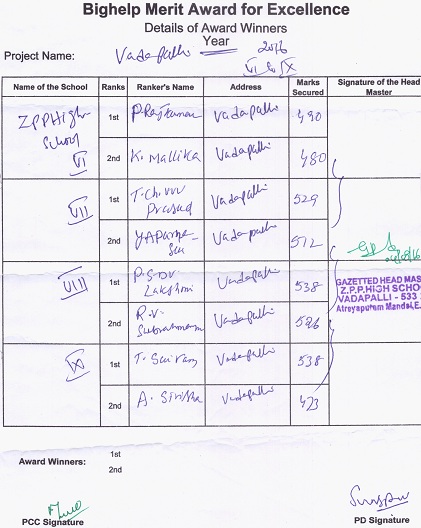 Bighelp Merit Award for Excellence
Details of Award Winners
Year
Project Name: Vadapalli 2016
VI to IX
Name of the School Ranks Ranker's Name Address Marks Secured Signature of the Head Master
ZPPHigh School
VI 1st P. Rajkumar Vadapalli 490
2nd K. Mallika Vadapalli 480
VII 1st T.Ch.VVV Prasad Vadapalli 529
2nd Vadapalli 512
VIII 1st P.S.D.V Lakshmi Vadapalli 538
2nd R.V. Subrahmanyam Vadapalli 526
IX 1st T. Sairam Vadapalli 538
2nd A. Sirisha Vadapalli 473
GAZETTED HEAD MAS
Z.P.P.HIGH SCHO
VADAPALLI - 533
Atreyapuram Mandal,E.
Award Winners: 1st
2nd
PCC Signature PD Signature